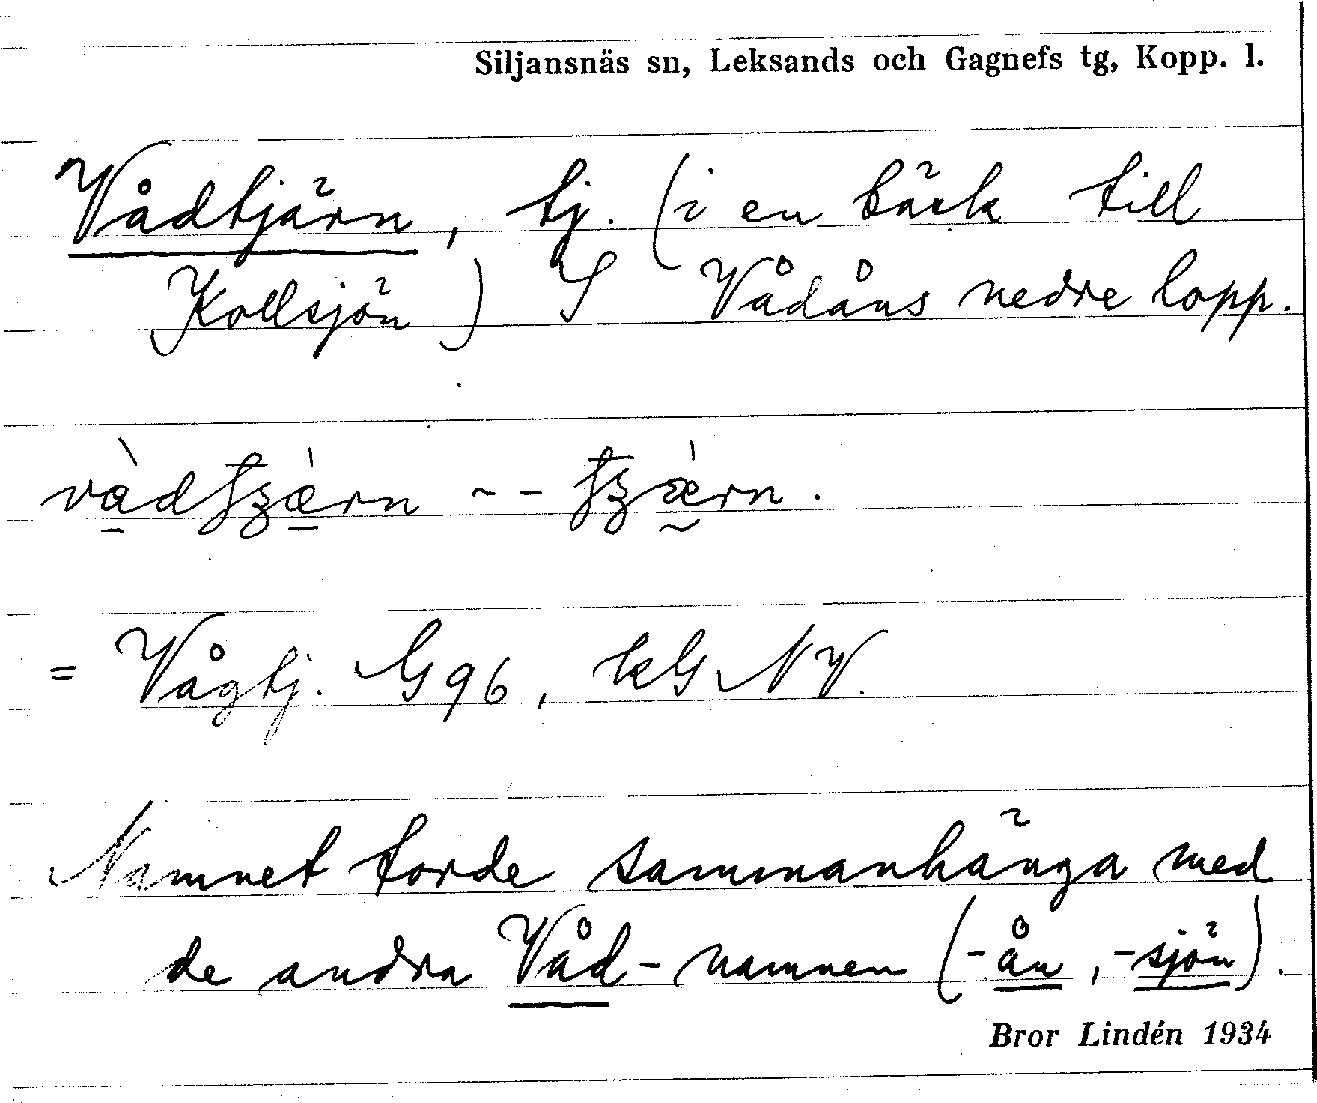 Siljansnäs sn, Leksands och Gagnefs tg, Kopp. l.
Vådtjärn, tj. (i en bäck till
Kollsjön) S Vådåns nedre lopp.
= Vågtj. G 96, kG NV.
Namnet torde sammanhänga med
de andra Våd-namnen (-ån, -sjön).
Bror Lindén 1934